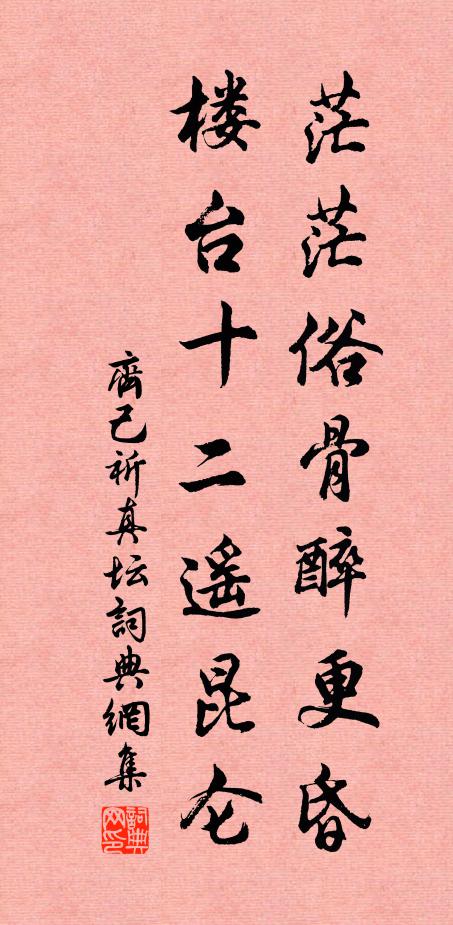 茫茫俗骨醉更昏
楼台十二遥昆仑
齊己祈真坛詞典網集
詞典网印